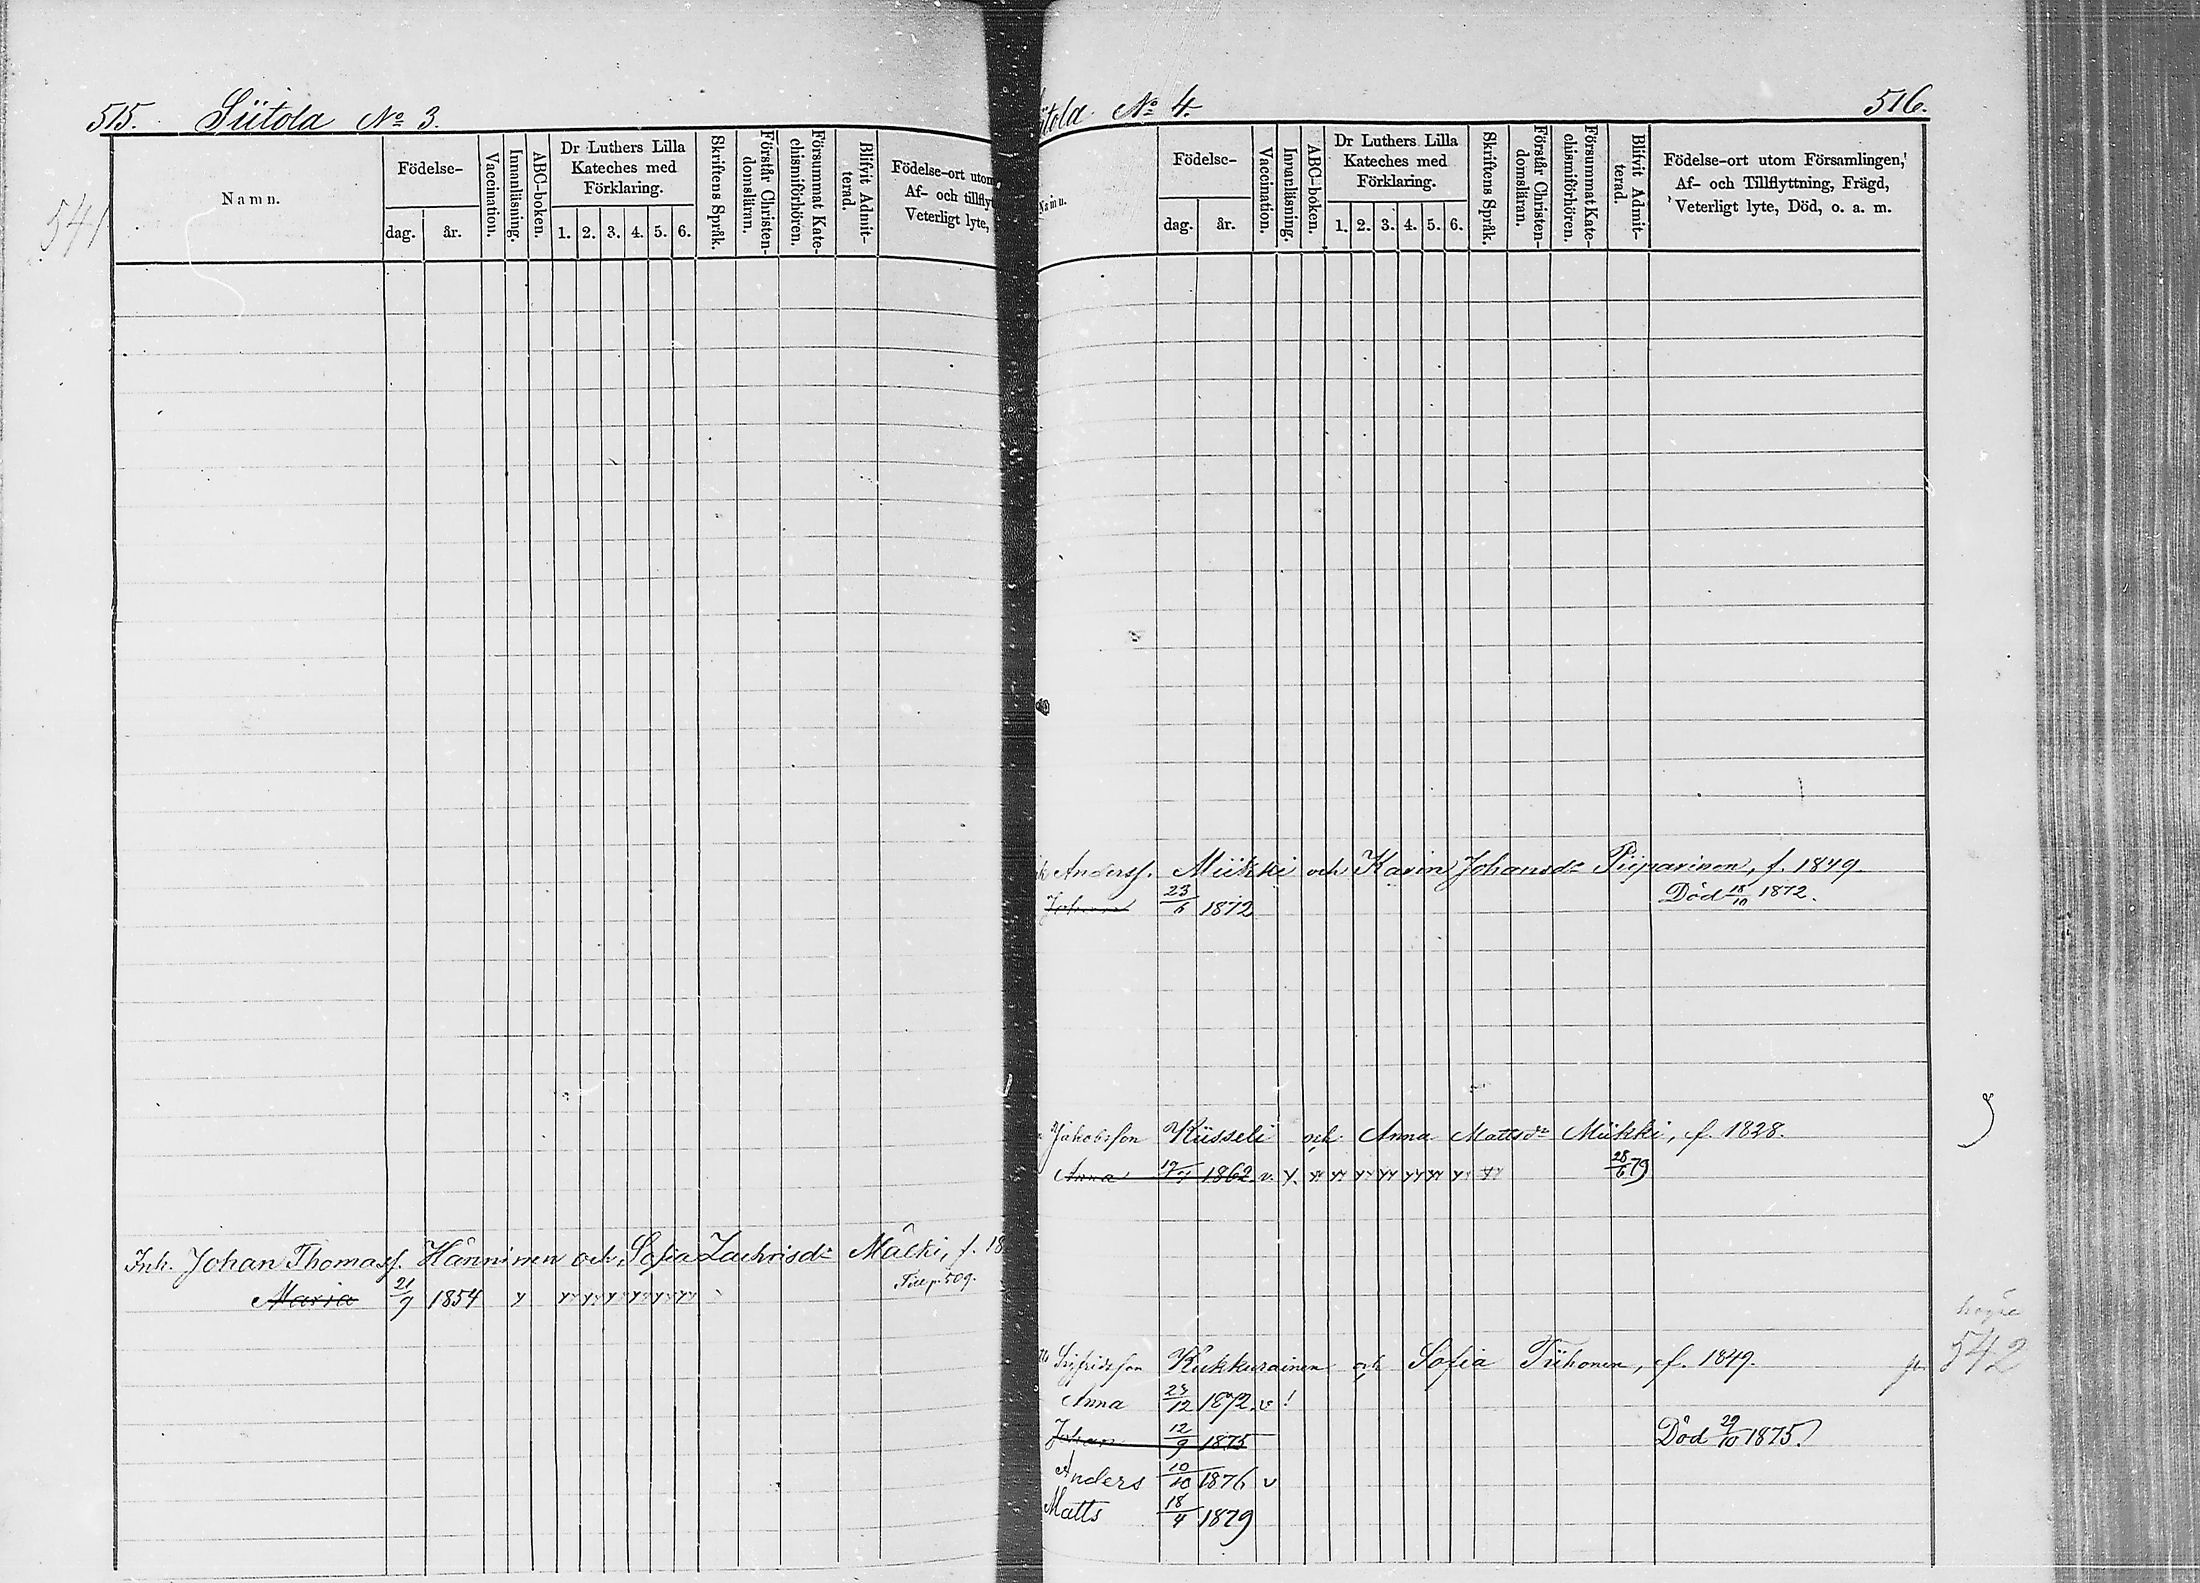 515. Siitola No 3.
541
Namn.
Födelse-
dag.
år.
Vaccination.
Innanläsning.
ABC-boken.
Dr Luthers Lilla
Kateches med
Förklaring.
1. 2. 3. 4. 5. 6.
Skriftens Språk.
Förstår Christen-
domsläran.
Försummat Kate-
chismiförhören.
Blifvit Admit-
terad.
Födelse-ort utom
Af- och tillfly
Veterligt lyte,
Inh. Johan Thomasf. Hänninen och Sofia Zachrisdr Mäcki, f. 18
Till p. 509.
Maria 21/9 1854
itola No 4. 516.
Namn.
Födelse-
dag.
år.
Vaccination.
Innanläsning.
ABC-boken.
Dr Luthers Lilla
Kateches med
Förklaring.
1. 2. 3. 4. 5. 6.
Skriftens Språk.
Förstår Christen-
domsläran.
Försummat Kate-
chismiförhören.
Blifvit Admit-
terad.
Födelse-ort utom Församlingen,
Af- och Tillflyttning, Frägd,
Veterligt lyte, Död, o. a. m.
Andersf. Miikki och Karin Johansdr Piiparinen, f. 1849.
Johan 23/6 1872 Död 18/10 1872.
Jakobsson Kiisseli och Anna Mattsdr Miikki, f. 1828.
Anna 1862 v. 28/6 79
Sigfridsson Kukkurainen och Sofia Tiihonen, f. 1849. p. 542
Anna 1872 v !
Johan 12/9 1875 Död 29/10 1875.
Anders 10/10 1876 v
Matts 18/4 1879